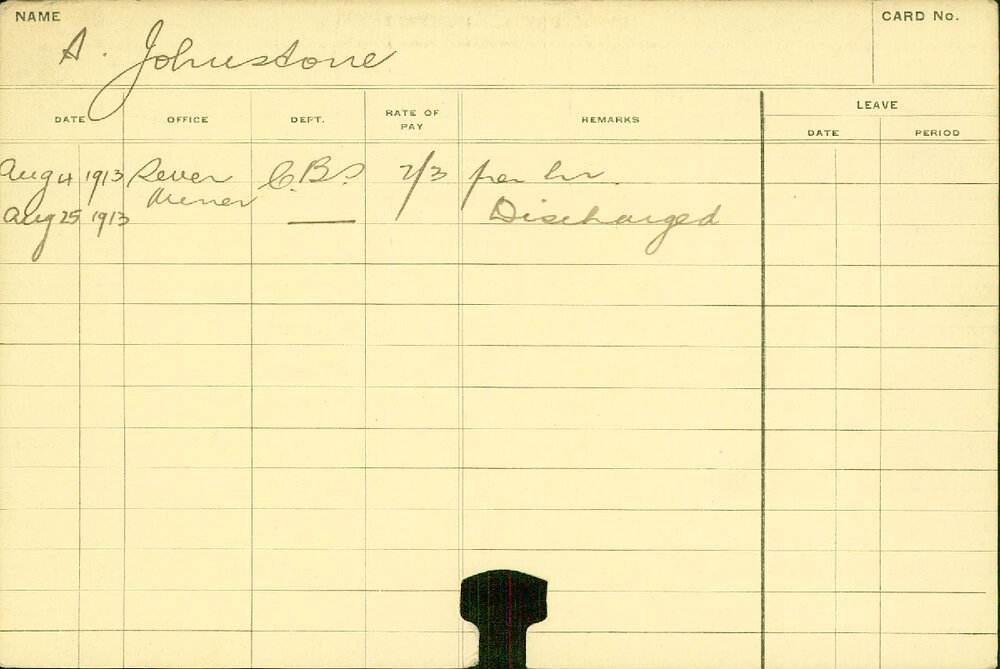 NAME
CARD No.
A. Johnstone
DATE OFFICE DEPT. RATE OF PAY REMARKS LEAVE
DATE PERIOD
Aug 4 1913 Sewer Miner C.B.S 2/3 per hr.
Aug 25 1913 —— Discharged